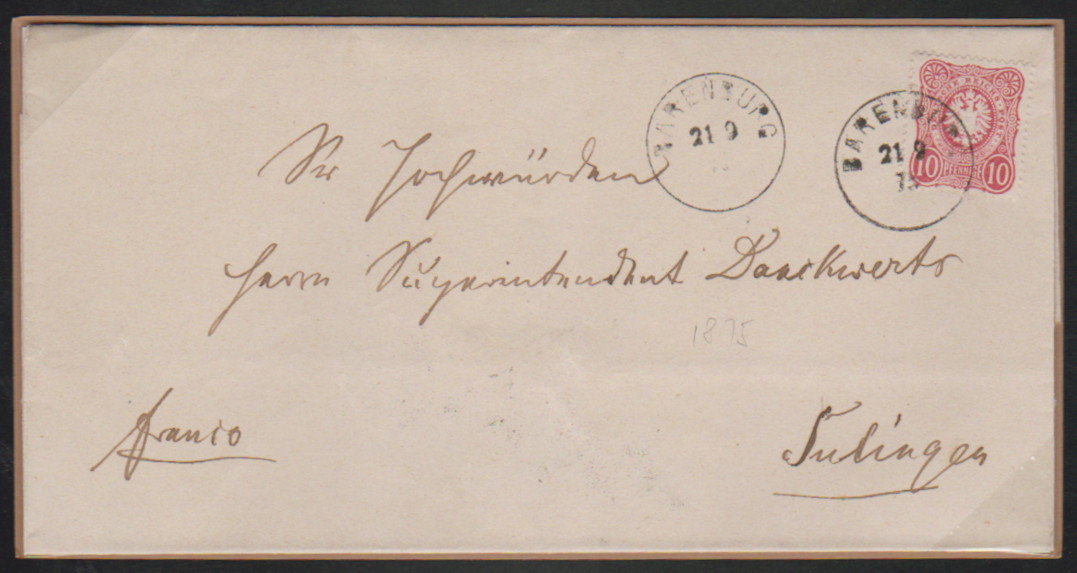 BARENBURG
21 9
BARENBURG
21 9
75
DEUTSCHE REICHS-POST
10 PFENNIGE 10
Sr Hochwürden
Herrn Superintendent Danckwerts
1875
franco
Sulingen